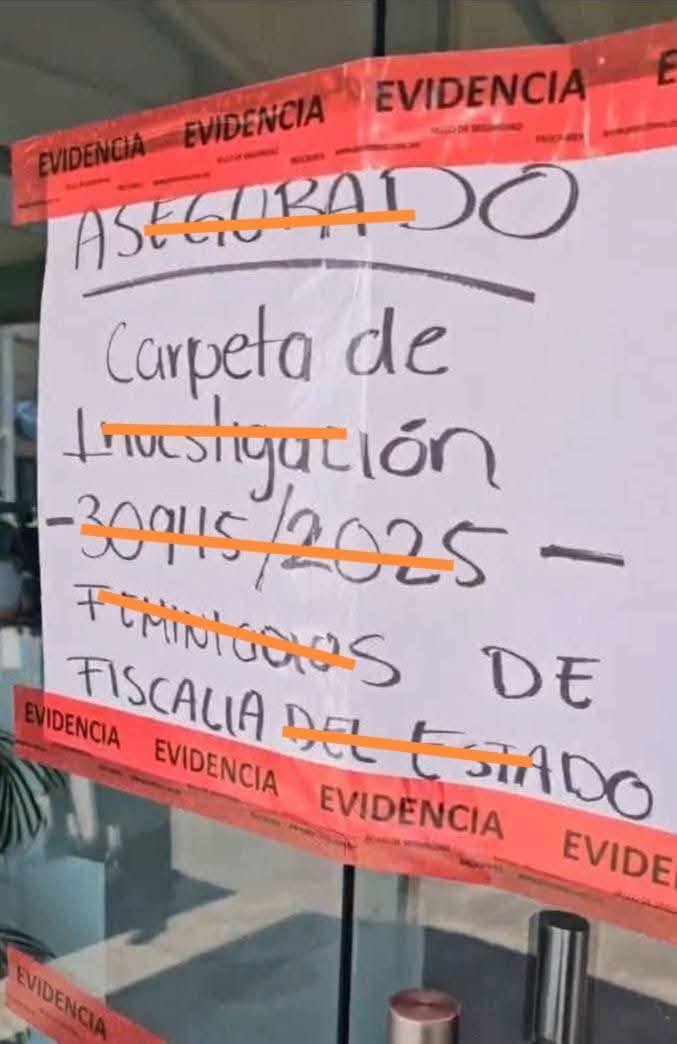 EVIDENCIA EVIDENCIA EVIDENCIA E
ASEGURADO
Carpeta de
Investigación
-30945/2025-
FEMINICIDIOS DE
FISCALIA DEL ESTADO
EVIDENCIA EVIDENCIA EVIDENCIA EVIDE
EVIDENCIA